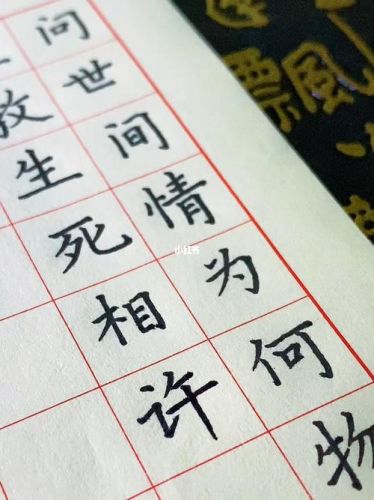 问世间情为何物
教生死相许
小红书
飄